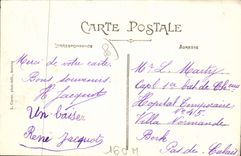 CARTE POSTALE
CORRESPONDANCE
ADRESSE
Merci de votre carte
Bons souvenirs
H Jacquot
Un baiser
René Jacquot
Mr L. Martin
Capl 1er bat de Ch
Hopital Temporaire
n° 45
Villa Normande
Berk
Pas de Calais
160 M